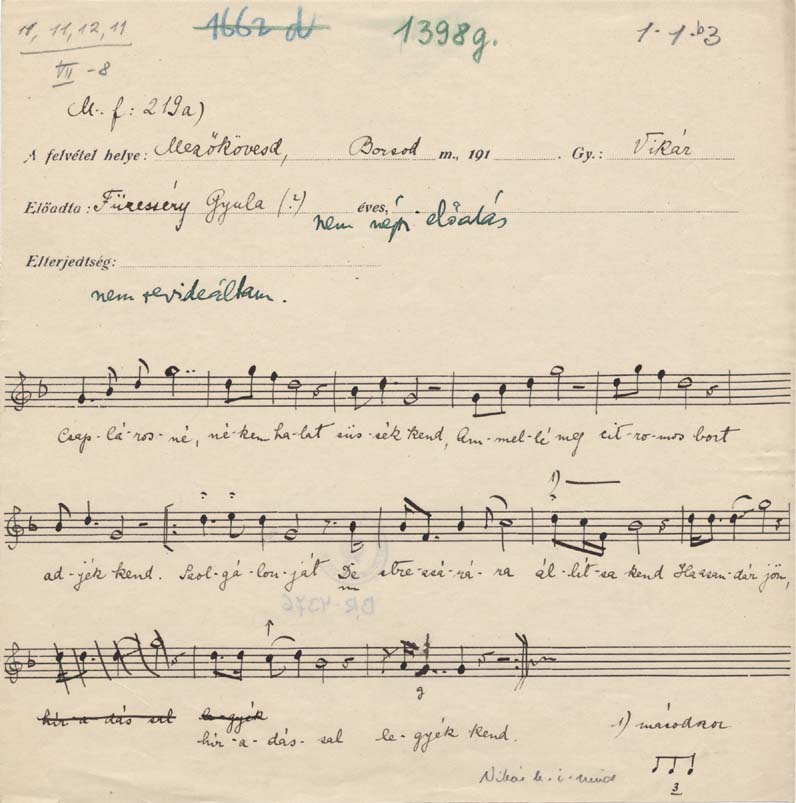 11, 11, 12, 11
VII - 8
1662 d
1398g.
1-1-b3
M. f: 219a)
A felvétel helye: Mezőkövesd, Borsod m., 191 . Gy.: Vikár
Előadta: Füresséry Gyula (?) éves, nem népi előadás
Elterjedtség:
nem revideáltam.
Csap-lá-ros-né, né-kem ha-lat süs-sék kend, Am-mel-lé meg cit-ro-mos bort
1)
ad-jék kend. Szol-gá-lon-ját De stre-zsá-rá-ra ál-lít-sa kend Ha zsan-dár jön,
hír-a-dás sal le-gyék
hír-a-dás-sal le-gyék kend.
g
1) másodszor
3